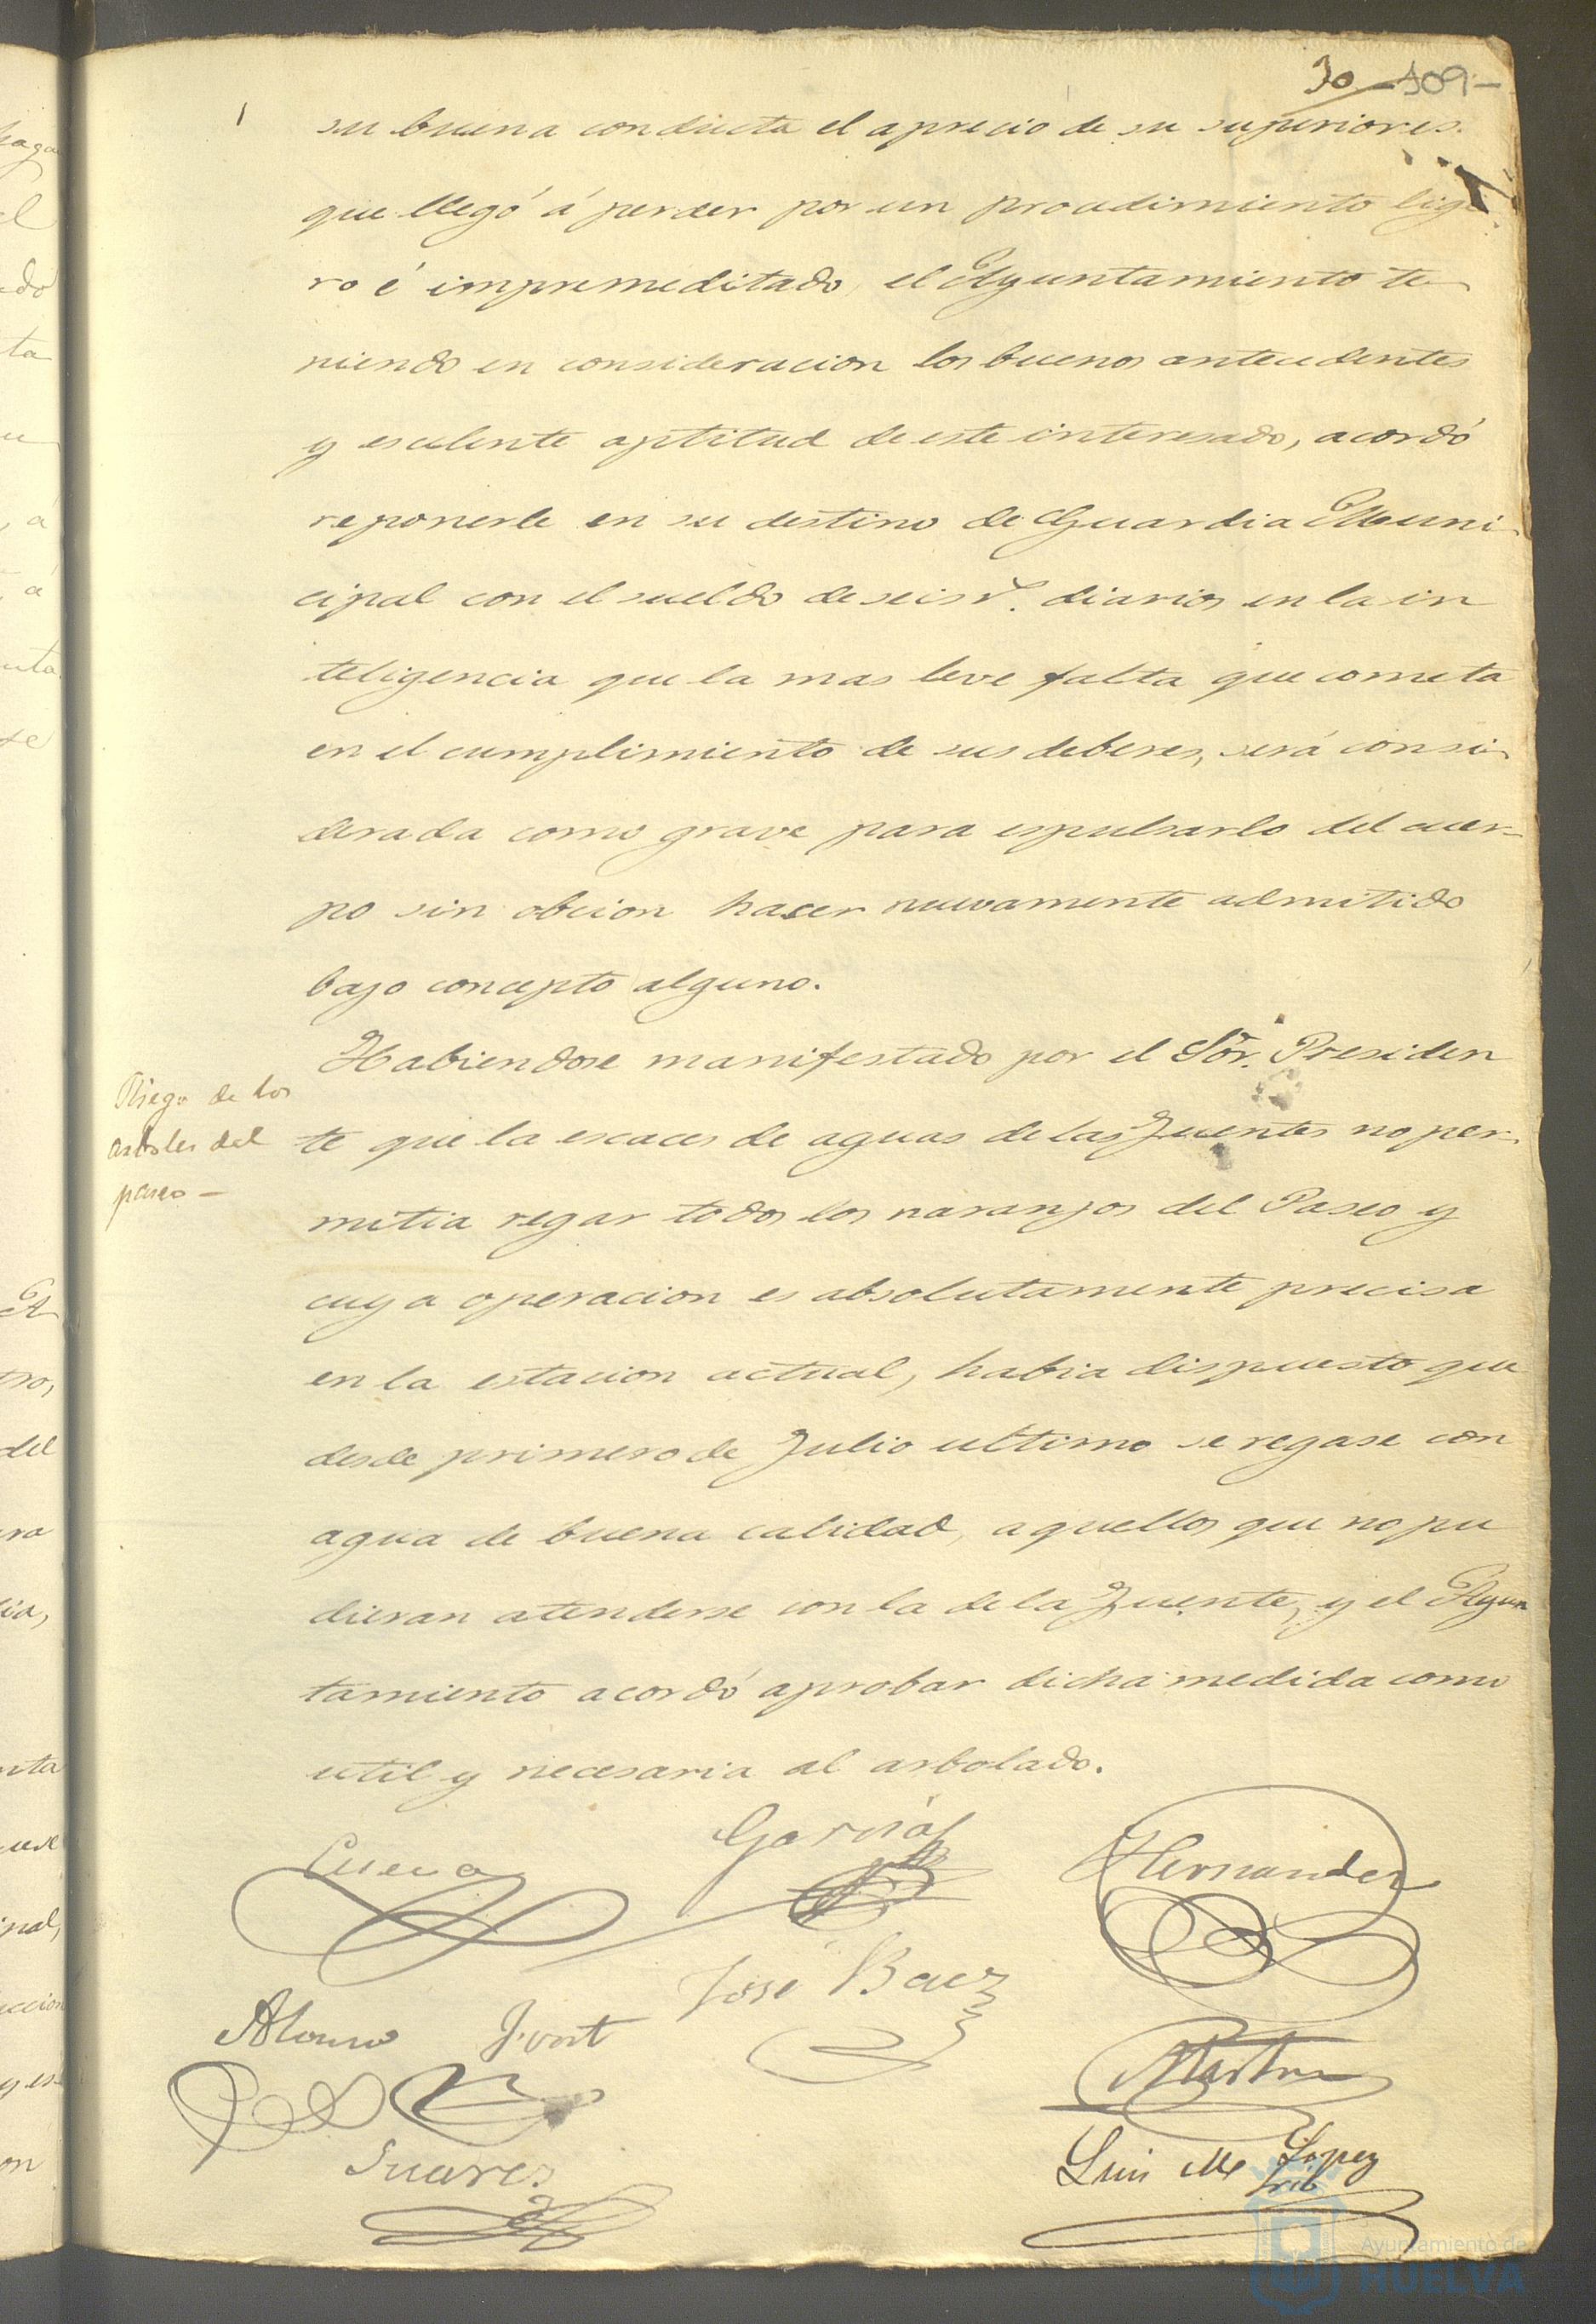 30 109-
su buena conducta el aprecio de su superiores.
que llegó á perder por un procedimiento lige
ro é impremeditado, el Ayuntamiento te-
niendo en consideracion los buenos antecedentes
y escelente aptitud de este interesado, acordó
reponerle en su destino de Guardia Muni-
cipal con el sueldo de seis rs. diarios en la in
teligencia que la mas leve falta que cometa
en el cumplimiento de sus deberes, será consi-
derada como grave para espulsarlo del cuer-
po sin obcion haser nuevamente admitido
bajo concepto alguno.
Riego de los
arboles del
paseo -
Habiendose manifestado por el Sor. Presiden
te que la escaces de aguas de las Fuentes no per-
mitia regar todos los naranjos del Paseo y
cuya operacion es absolutamente precisa
en la estacion actual, habia dispuesto que
desde primero de Julio ultimo se regase con
agua de buena calidad, aquellos que no pu
dieran atenderse con la de la Fuente, y el Ayun
tamiento acordó aprobar dicha medida como
util y necesaria al arbolado.
Cueva Garcia Hernandez
Alonso José Baez
Suarez Luis Ma Lopez
Srio
Ayuntamiento de
HUELVA